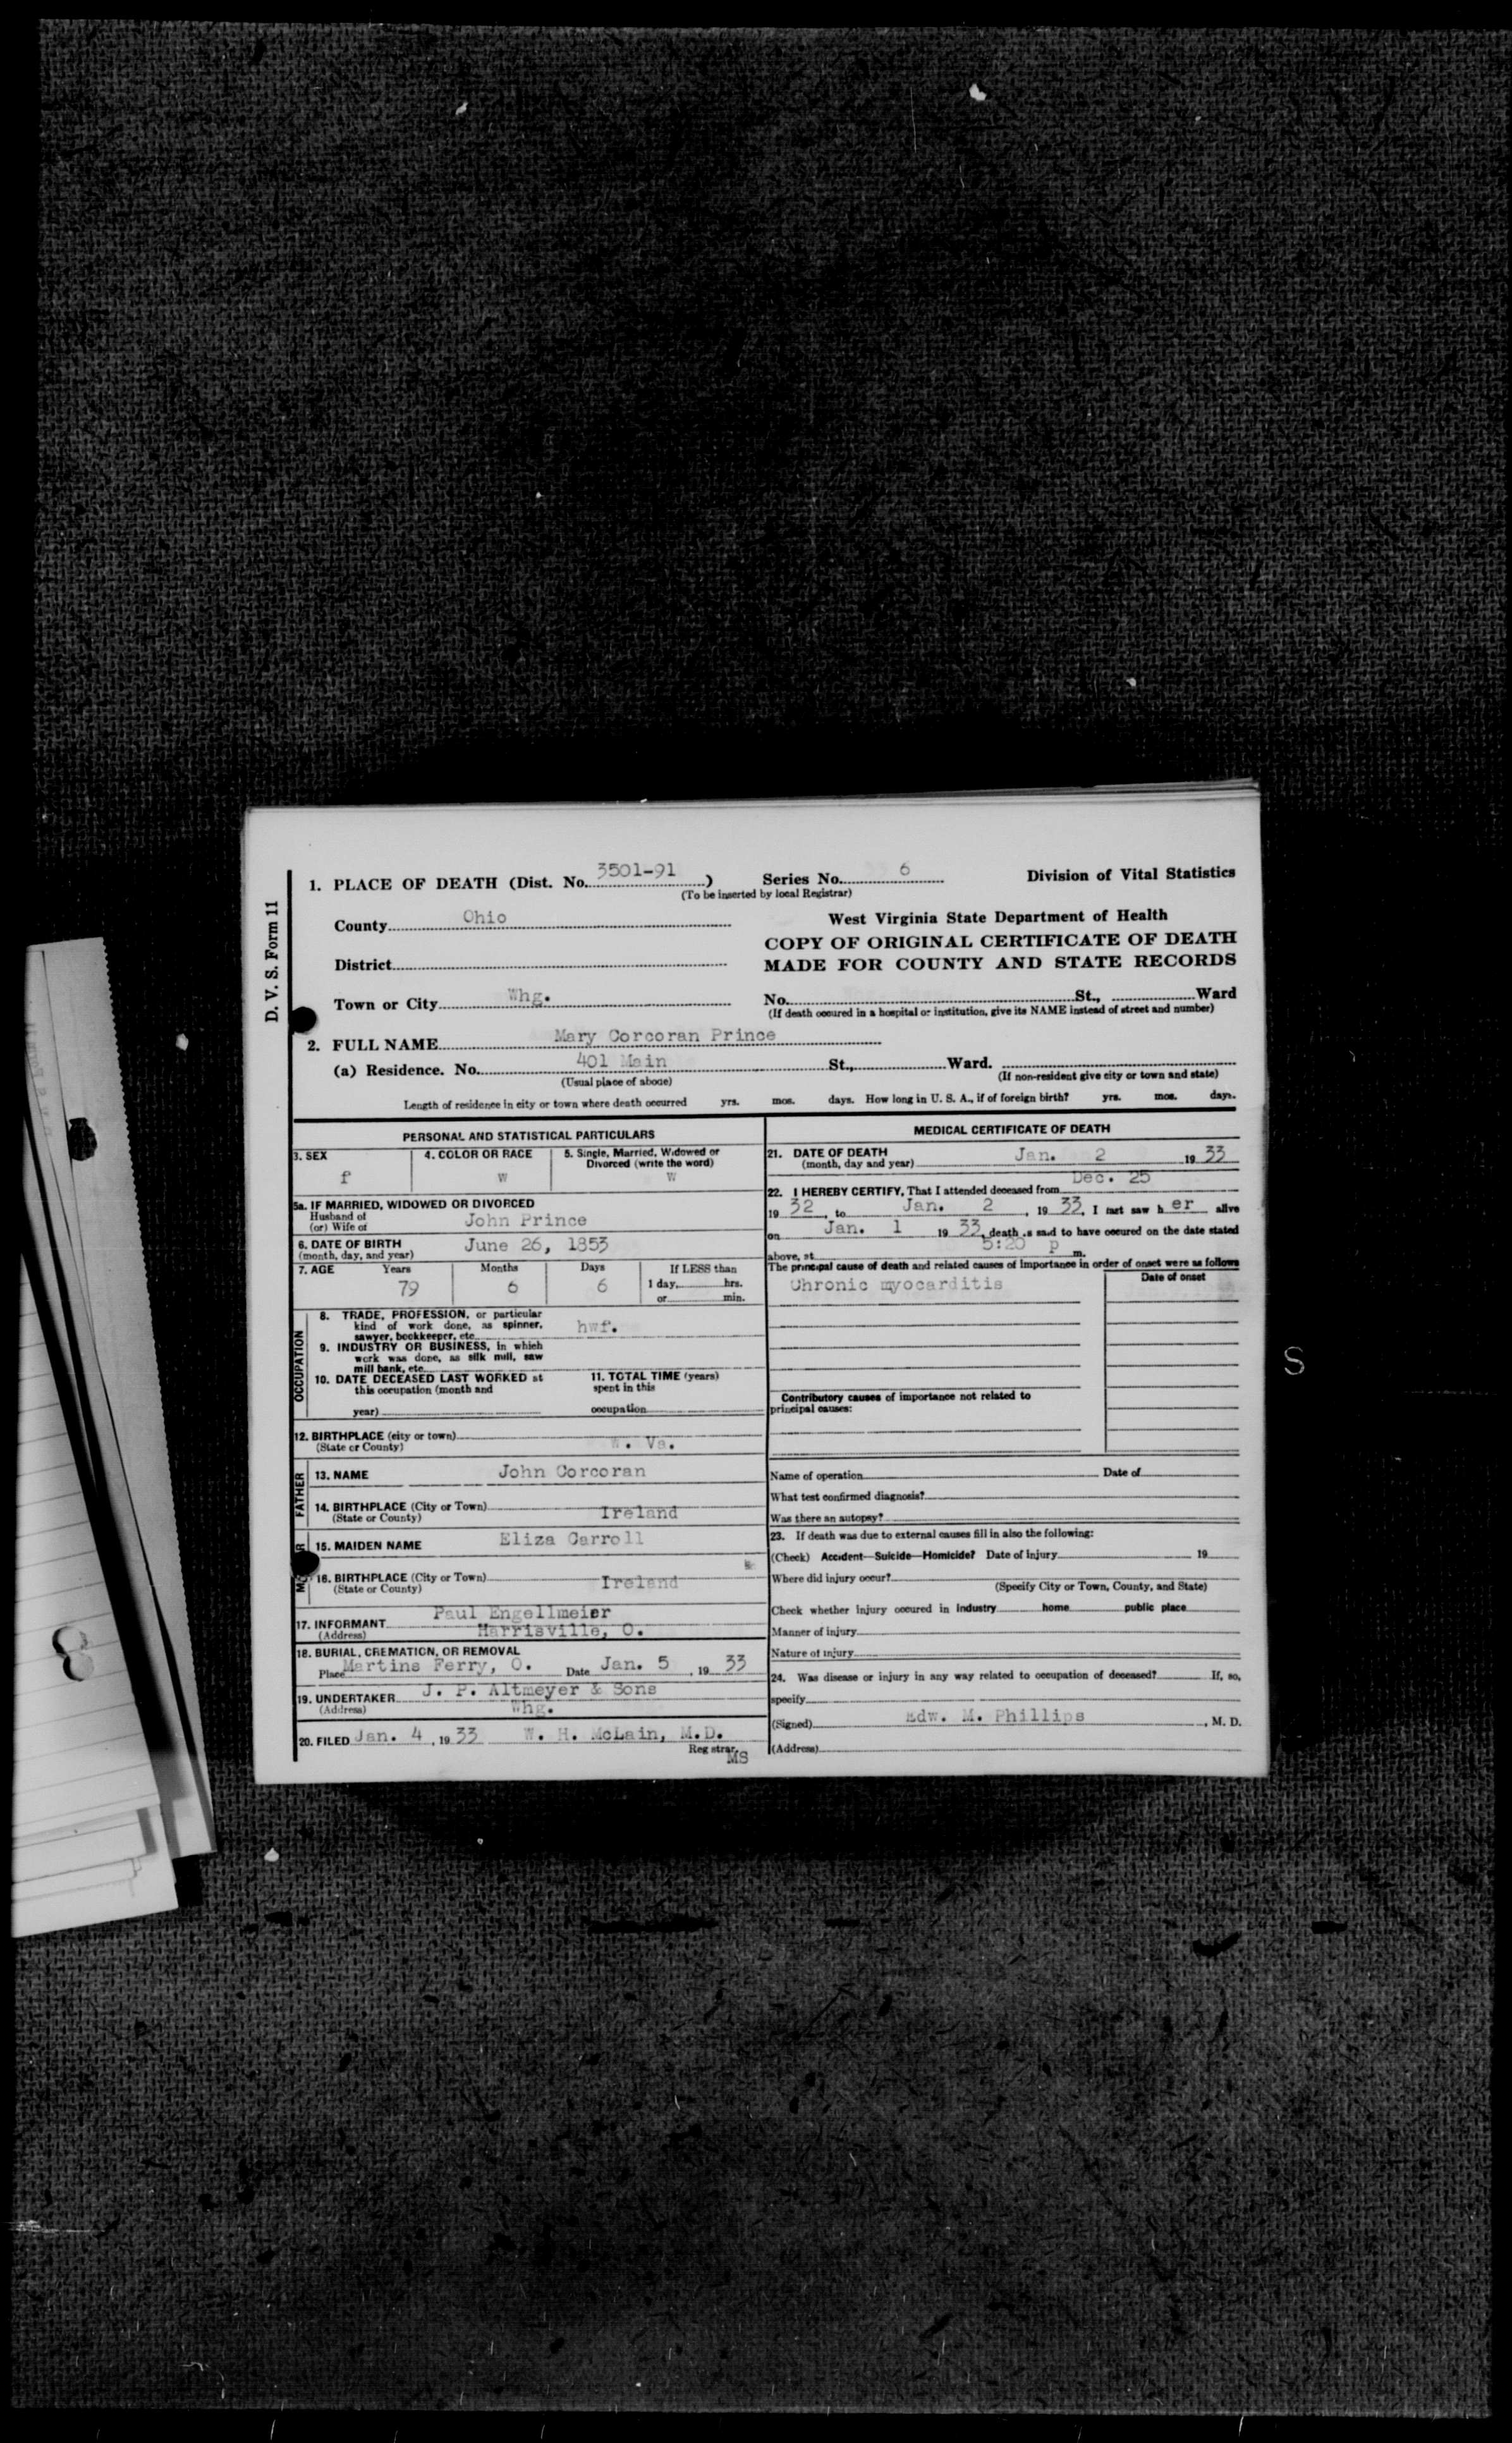 D. V. S. Form 11
1. PLACE OF DEATH (Dist. No. 3501-91 ) Series No. 6 Division of Vital Statistics
(To be inserted by local Registrar)
County Ohio West Virginia State Department of Health
COPY OF ORIGINAL CERTIFICATE OF DEATH
District MADE FOR COUNTY AND STATE RECORDS
Town or City Whg. No. St., Ward
(If death occured in a hospital or institution, give its NAME instead of street and number)
2. FULL NAME Mary Corcoran Prince
(a) Residence. No. 401 Main St., Ward.
(Usual place of abode) (If non-resident give city or town and state)
Length of residence in city or town where death occurred yrs. mos. days. How long in U. S. A., if of foreign birth? yrs. mos. days.
PERSONAL AND STATISTICAL PARTICULARS
3. SEX 4. COLOR OR RACE 5. Single, Married, Widowed or
Divorced (write the word)
f w w
5a. IF MARRIED, WIDOWED OR DIVORCED
Husband of
(or) Wife of John Prince
6. DATE OF BIRTH June 26, 1853
(month, day, and year)
7. AGE Years Months Days If LESS than
79 6 6 1 day, hrs.
or min.
OCCUPATION
8. TRADE, PROFESSION, or particular
kind of work done, as spinner, hwf.
sawyer, bookkeeper, etc.
9. INDUSTRY OR BUSINESS, in which
work was done, as silk mill, saw
mill bank, etc.
10. DATE DECEASED LAST WORKED at 11. TOTAL TIME (years)
this occupation (month and spent in this
year) occupation
12. BIRTHPLACE (city or town)
(State or County) W. Va.
FATHER
13. NAME John Corcoran
14. BIRTHPLACE (City or Town)
(State or County) Ireland
15. MAIDEN NAME Eliza Carroll
16. BIRTHPLACE (City or Town)
(State or County) Ireland
17. INFORMANT Paul Engellmeier
(Address) Harrisville, O.
18. BURIAL, CREMATION, OR REMOVAL
Place Martins Ferry, O. Date Jan. 5 , 19 33
19. UNDERTAKER J. P. Altmeyer & Sons
(Address) Whg.
20. FILED Jan. 4 , 19 33 W. H. McLain, M.D.
Registrar.
MS
MEDICAL CERTIFICATE OF DEATH
21. DATE OF DEATH
(month, day and year) Jan. 2 19 33
22. I HEREBY CERTIFY, That I attended deceased from Dec. 25
19 32 , to Jan. 2 , 19 33, I last saw h er alive
on Jan. 1 19 33, death is said to have occured on the date stated
above, at 5:20 p m.
The principal cause of death and related causes of importance in order of onset were as follows
Date of onset
Chronic myocarditis
Contributory causes of importance not related to
principal causes:
Name of operation Date of
What test confirmed diagnosis?
Was there an autopsy?
23. If death was due to external causes fill in also the following:
(Check) Accident—Suicide—Homicide? Date of injury 19
Where did injury occur?
(Specify City or Town, County, and State)
Check whether injury occured in industry home public place
Manner of injury
Nature of injury
24. Was disease or injury in any way related to occupation of deceased? If, so,
specify
(Signed) Edw. M. Phillips , M. D.
(Address)
S